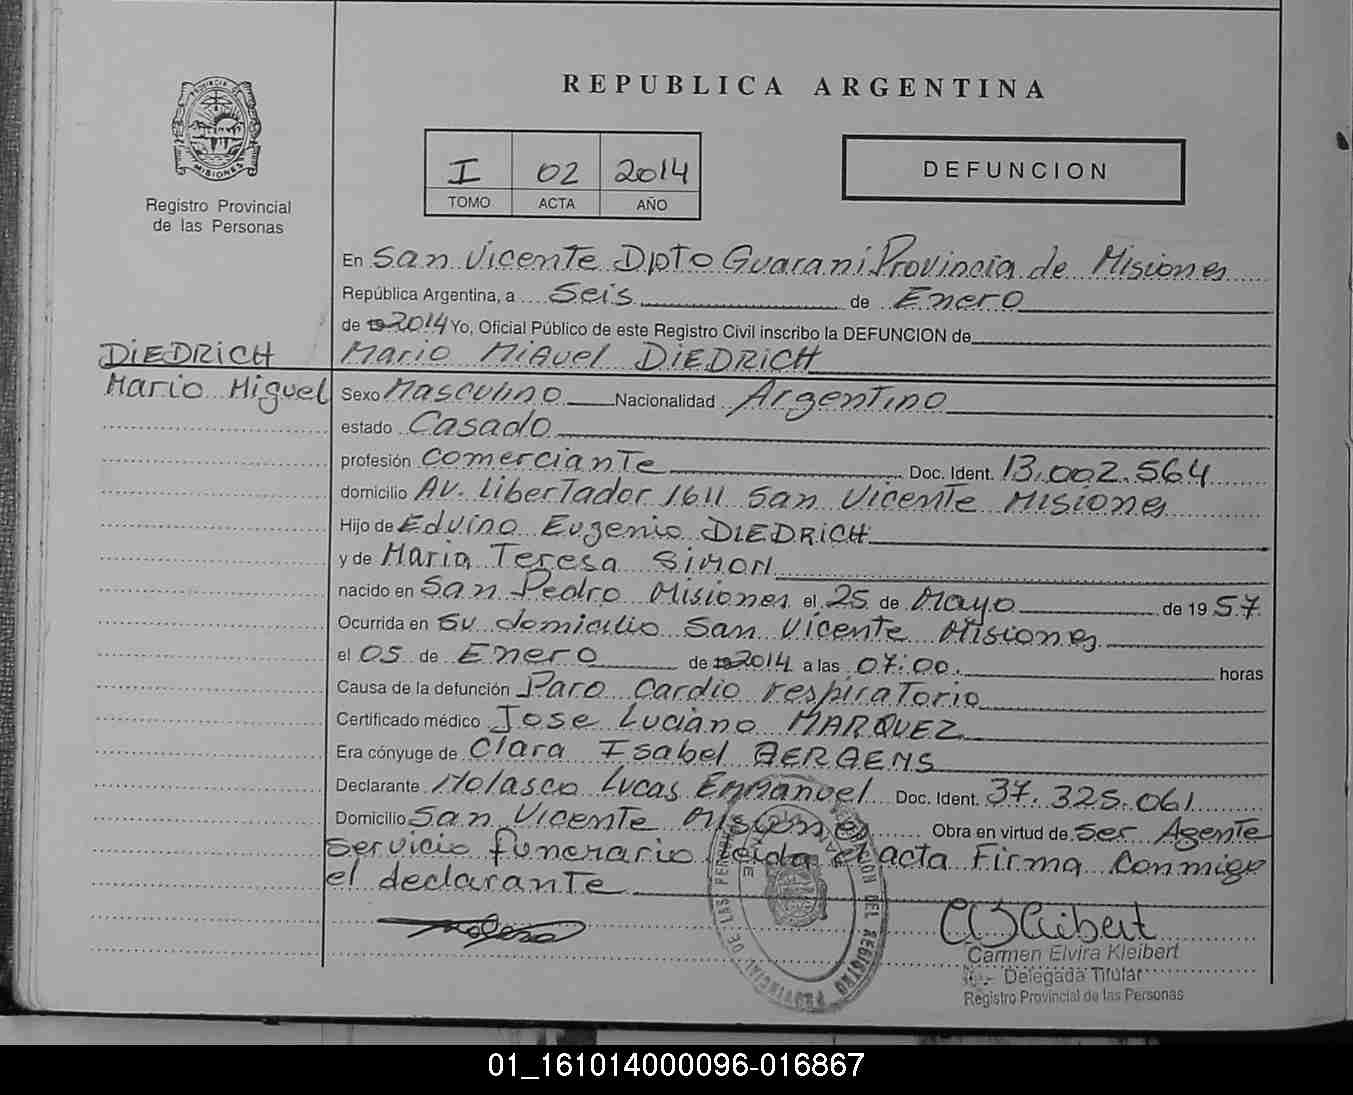 REPUBLICA ARGENTINA
I 02 2014
TOMO ACTA AÑO
DEFUNCION
PROVINCIA DE
MISIONES
Registro Provincial
de las Personas
DIEDRICH
Mario Miguel
En San Vicente Dpto Guarani Provincia de Misiones
República Argentina, a Seis de Enero
de 19 2014 Yo, Oficial Público de este Registro Civil inscribo la DEFUNCION de
Mario Miguel DIEDRICH
Sexo Masculino Nacionalidad Argentino
estado Casado
profesión comerciante Doc. Ident. 13.002.564
domicilio AV. Libertador 1611 San Vicente Misiones
Hijo de Edvino Eugenio DIEDRICH
y de Maria Teresa SIMON
nacido en San Pedro Misiones el 25 de Mayo de 19 57
Ocurrida en Su domicilio San Vicente Misiones
el 05 de Enero de 19 2014 a las 07:00. horas
Causa de la defunción Paro Cardio respiratorio
Certificado médico Jose Luciano MARQUEZ
Era cónyuge de Clara Isabel
Declarante Molasco Lucas Emmanuel Doc. Ident. 37.325.061
Domicilio San Vicente Misiones Obra en virtud de Ser Agente
Servicio funerario leida el acta Firma Conmigo
el declarante
Carmen Elvira Kleibert
Delegada Titular
Registro Provincial de las Personas
01_161014000096-016867